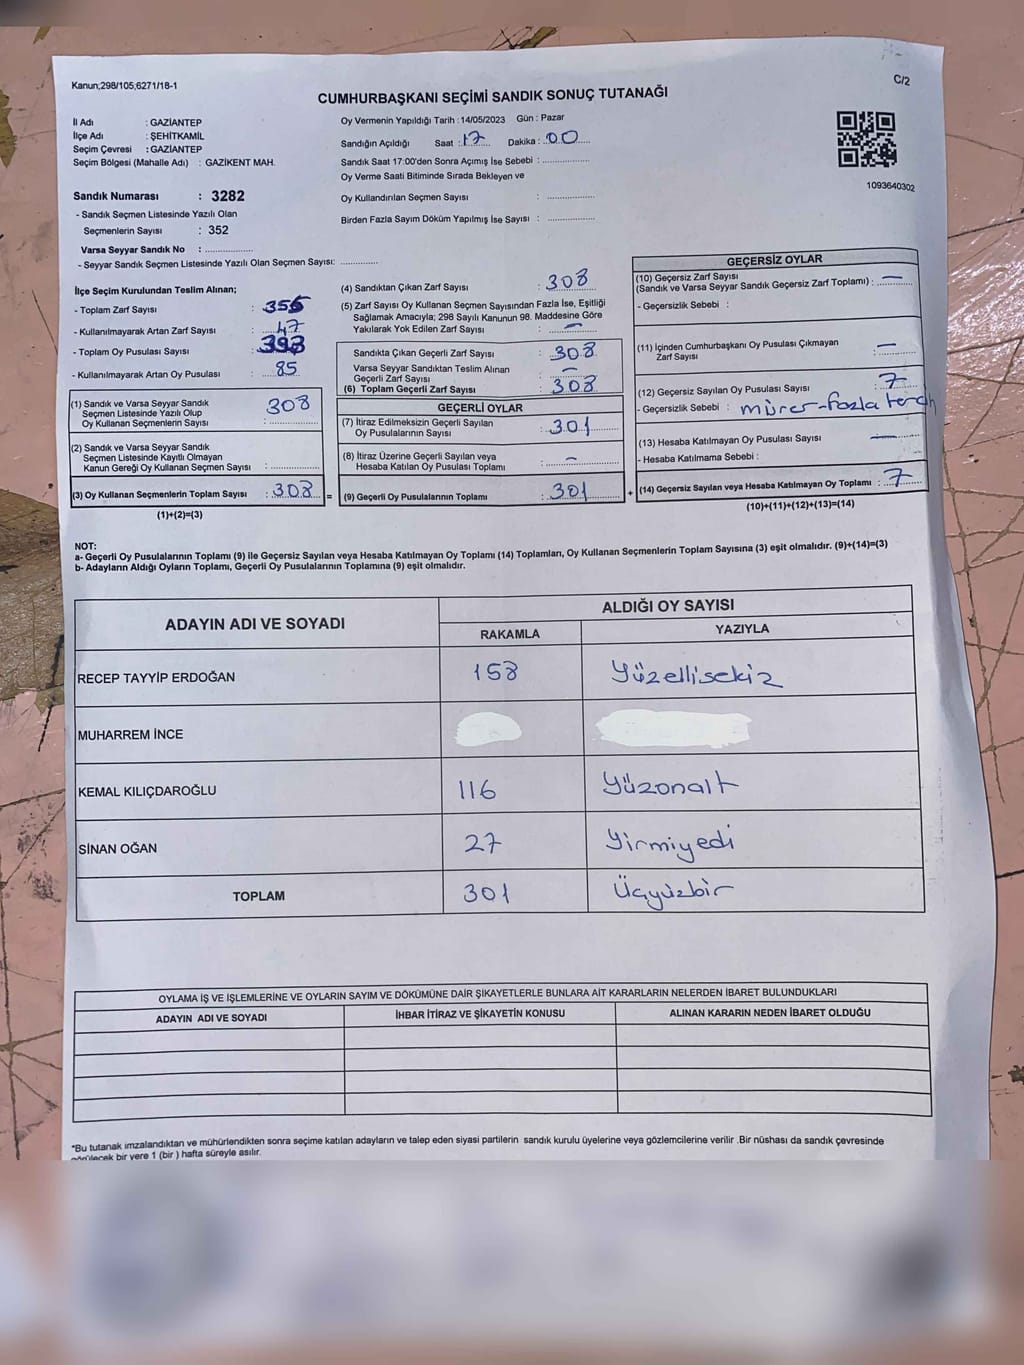 Kanun;298/105,6271/18-1
C/2
CUMHURBAŞKANI SEÇİMİ SANDIK SONUÇ TUTANAĞI
İl Adı : GAZİANTEP
İlçe Adı : ŞEHİTKAMİL
Seçim Çevresi : GAZİANTEP
Seçim Bölgesi (Mahalle Adı) : GAZİKENT MAH.
Oy Vermenin Yapıldığı Tarih : 14/05/2023 Gün : Pazar
Sandığın Açıldığı Saat : 17 Dakika : 00
Sandık Saat 17:00'den Sonra Açımış İse Sebebi :
Oy Verme Saati Bitiminde Sırada Bekleyen ve
Oy Kullandırılan Seçmen Sayısı :
Birden Fazla Sayım Döküm Yapılmış İse Sayısı :
1093640302
Sandık Numarası : 3282
- Sandık Seçmen Listesinde Yazılı Olan
Seçmenlerin Sayısı : 352
Varsa Seyyar Sandık No :
- Seyyar Sandık Seçmen Listesinde Yazılı Olan Seçmen Sayısı:
İlçe Seçim Kurulundan Teslim Alınan;
- Toplam Zarf Sayısı :
- Kullanılmayarak Artan Zarf Sayısı : 47
- Toplam Oy Pusulası Sayısı : 393
- Kullanılmayarak Artan Oy Pusulası : 85
(1) Sandık ve Varsa Seyyar Sandık
Seçmen Listesinde Yazılı Olup
Oy Kullanan Seçmenlerin Sayısı : 308
(2) Sandık ve Varsa Seyyar Sandık
Seçmen Listesinde Kayıtlı Olmayan
Kanun Gereği Oy Kullanan Seçmen Sayısı :
(3) Oy Kullanan Seçmenlerin Toplam Sayısı : 308 =
(1)+(2)=(3)
(4) Sandıktan Çıkan Zarf Sayısı : 308
(5) Zarf Sayısı Oy Kullanan Seçmen Sayısından Fazla İse, Eşitliği
Sağlamak Amacıyla; 298 Sayılı Kanunun 98. Maddesine Göre
Yakılarak Yok Edilen Zarf Sayısı : —
Sandıkta Çıkan Geçerli Zarf Sayısı : 308
Varsa Seyyar Sandıktan Teslim Alınan
Geçerli Zarf Sayısı : —
(6) Toplam Geçerli Zarf Sayısı : 308
GEÇERLİ OYLAR
(7) İtiraz Edilmeksizin Geçerli Sayılan
Oy Pusulalarının Sayısı : 301
(8) İtiraz Üzerine Geçerli Sayılan veya
Hesaba Katılan Oy Pusulası Toplamı : —
(9) Geçerli Oy Pusulalarının Toplamı : 301 +
GEÇERSİZ OYLAR
(10) Geçersiz Zarf Sayısı
(Sandık ve Varsa Seyyar Sandık Geçersiz Zarf Toplamı) : —
- Geçersizlik Sebebi :
(11) İçinden Cumhurbaşkanı Oy Pusulası Çıkmayan
Zarf Sayısı : —
(12) Geçersiz Sayılan Oy Pusulası Sayısı : 7
- Geçersizlik Sebebi : fazla tercih
(13) Hesaba Katılmayan Oy Pusulası Sayısı : —
- Hesaba Katılmama Sebebi :
(14) Geçersiz Sayılan veya Hesaba Katılmayan Oy Toplamı : 7
(10)+(11)+(12)+(13)=(14)
NOT:
a- Geçerli Oy Pusulalarının Toplamı (9) ile Geçersiz Sayılan veya Hesaba Katılmayan Oy Toplamı (14) Toplamları, Oy Kullanan Seçmenlerin Toplam Sayısına (3) eşit olmalıdır. (9)+(14)=(3)
b- Adayların Aldığı Oyların Toplamı, Geçerli Oy Pusulalarının Toplamına (9) eşit olmalıdır.
ADAYIN ADI VE SOYADI
ALDIĞI OY SAYISI
RAKAMLA YAZIYLA
RECEP TAYYİP ERDOĞAN 158 Yüzellisekiz
MUHARREM İNCE
KEMAL KILIÇDAROĞLU 116 Yüzonaltı
SİNAN OĞAN 27 Yirmiyedi
TOPLAM 301 Üçyüzbir
OYLAMA İŞ VE İŞLEMLERİNE VE OYLARIN SAYIM VE DÖKÜMÜNE DAİR ŞİKAYETLERLE BUNLARA AİT KARARLARIN NELERDEN İBARET BULUNDUKLARI
ADAYIN ADI VE SOYADI İHBAR İTİRAZ VE ŞİKAYETİN KONUSU ALINAN KARARIN NEDEN İBARET OLDUĞU
*Bu tutanak imzalandıktan ve mühürlendikten sonra seçime katılan adayların ve talep eden siyasi partilerin sandık kurulu üyelerine veya gözlemcilerine verilir .Bir nüshası da sandık çevresinde
görülecek bir yere 1 (bir ) hafta süreyle asılır.